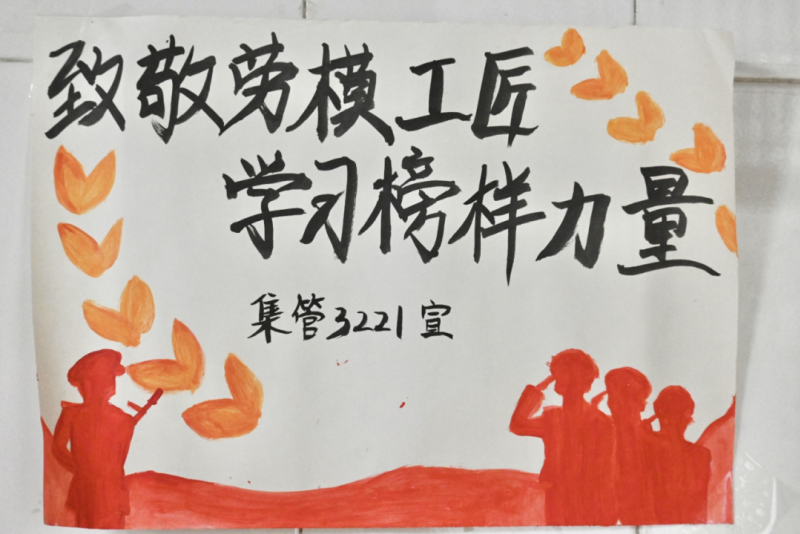 致敬劳模工匠
学习榜样力量
集管3221宣